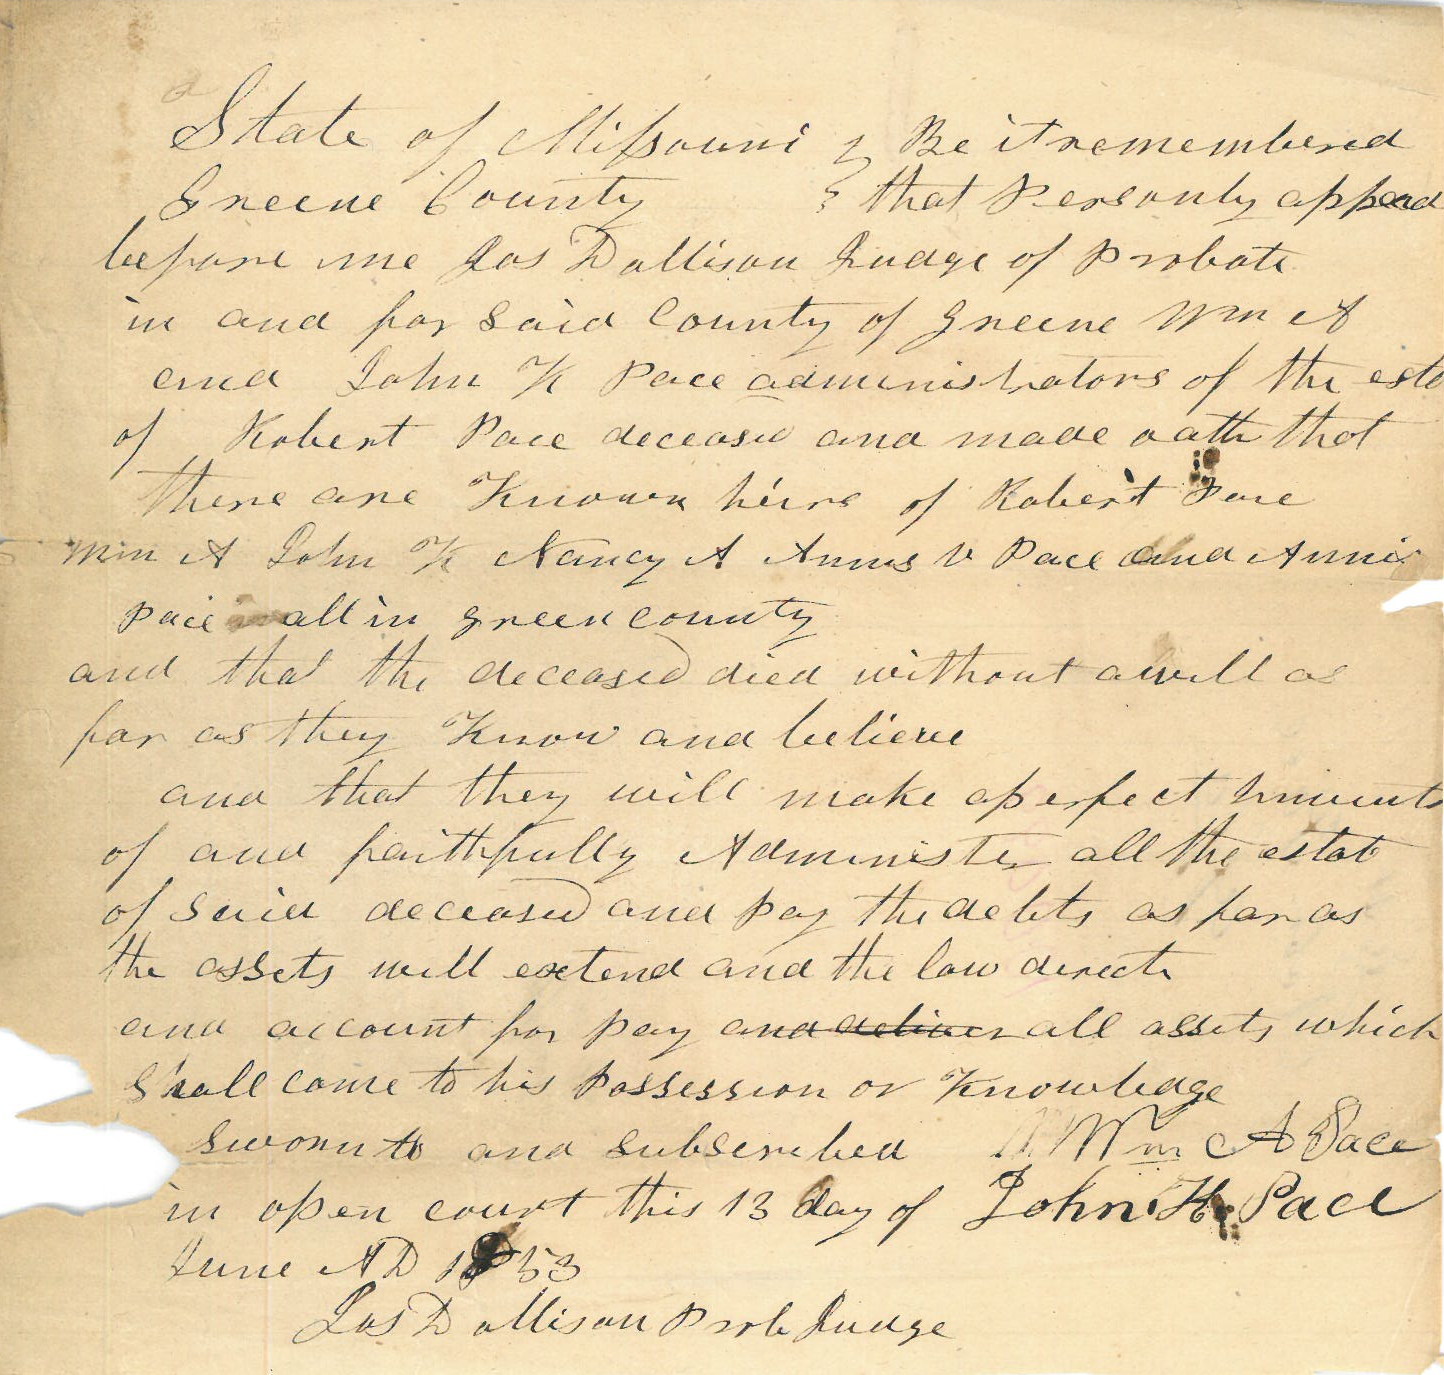 State of Missouri } Be it remembered
Greene County } that Personly appeard
before me Jas Dollison Judge of Probate
in and for Said County of Greene Wm A
and John K Pace administrators of the esta
of Robert Pace deceased and made oath that
there are Known heirs of Robert Pace
Wm A John K Nancy A Annis V Pace and Annis
Pace all in Green County
and that the deceased died without a will as
far as they Know and believe
and that they will make a perfect
of and faithfully Administer all the estate
of Said deceased and pay the debts as far as
the assets will extend and the law directs
and account for pay and deliver all assets which
Shall come to his Possession or Knowledge
sworn to and subscribed Wm A Pace
in open court this 13 day of John K. Pace
June AD 1853
Jas Dollison Prob Judge